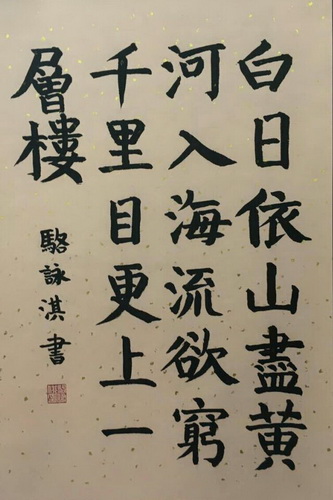 白日依山盡黃
河入海流欲窮
千里目更上一
層樓
駱詠淇書